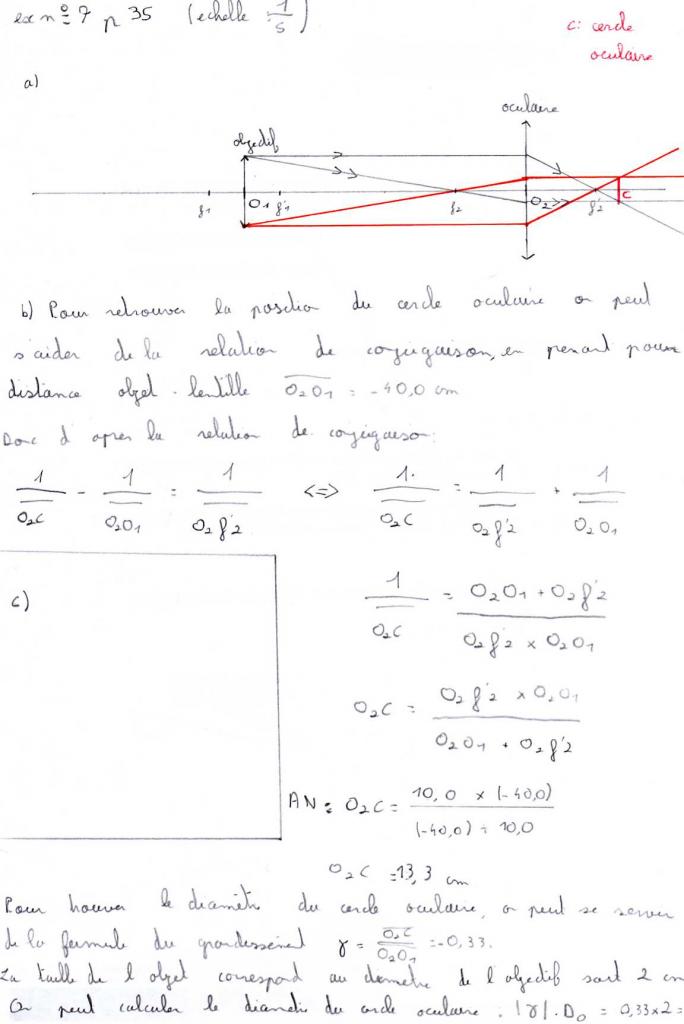 ex n° 7 p 35 (echelle : 1/5)
c: cercle
oculaire
a)
oculaire
objectif
f1 O1 f'1 f2 O2 f'2 c
b) Pour retrouver la position du cercle oculaire on peut
s'aider de la relation de conjugaison, en prenant pour
distance objet - lentille O2O1 = -40,0 cm
Donc d'apres la relation de conjugaison:
1/O2C - 1/O2O1 = 1/O2f'2 <=> 1/O2C = 1/O2f'2 + 1/O2O1
c)
1/O2C = (O2O1 + O2f'2)/(O2f'2 × O2O1)
O2C = (O2f'2 × O2O1)/(O2O1 + O2f'2)
AN : O2C = (10,0 × (-40,0))/((-40,0) + 10,0)
O2C = 13,3 cm
Pour trouver le diamètre du cercle oculaire, on peut se servir
de la formule du grandissement γ = O2C/O2O1 = -0,33.
La taille de l objet correspond au diametre de l objectif soit 2 cm
On peut calculer le diametre du cercle oculaire : |γ|.Do = 0,33×2 =